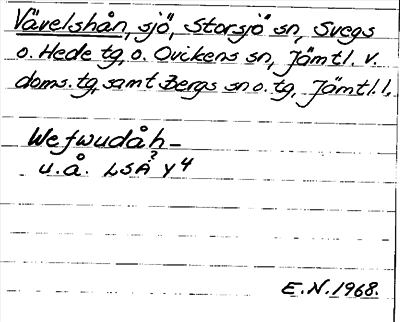 Vävelshån, sjö, Storsjö sn, Svegs
o. Hede tg, o. Ovikens sn, Jämtl. v.
doms. tg, samt Bergs sn o. tg, Jämtl. l.
Wefwudåh-
u.å. LSA² Y4
E.N. 1968.